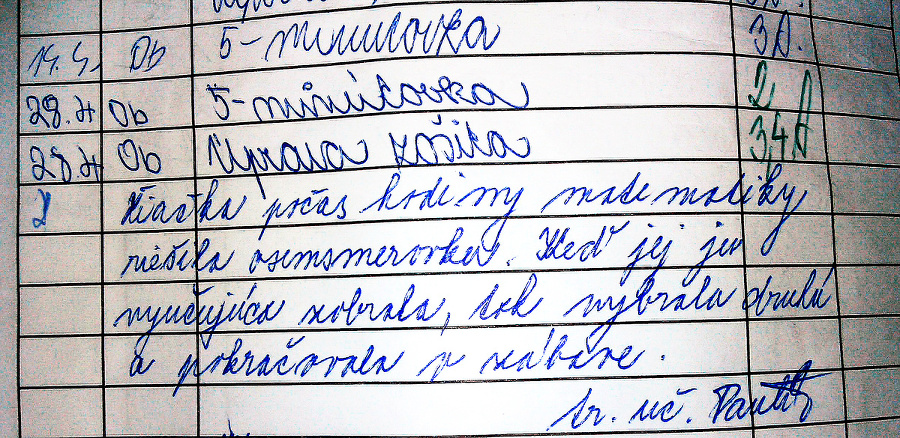 14.4. Ob 5-minutovka 3A.
28.4 Ob 5-minútovka 2 A
28.4 Ob Úprava zošita 3,4 A
Žiačka počas hodiny matematiky
riešila osemsmerovku. Keď jej ju
vyučujúca zobrala, tak vybrala druhú
a pokračovala v zábave.
tr. uč.